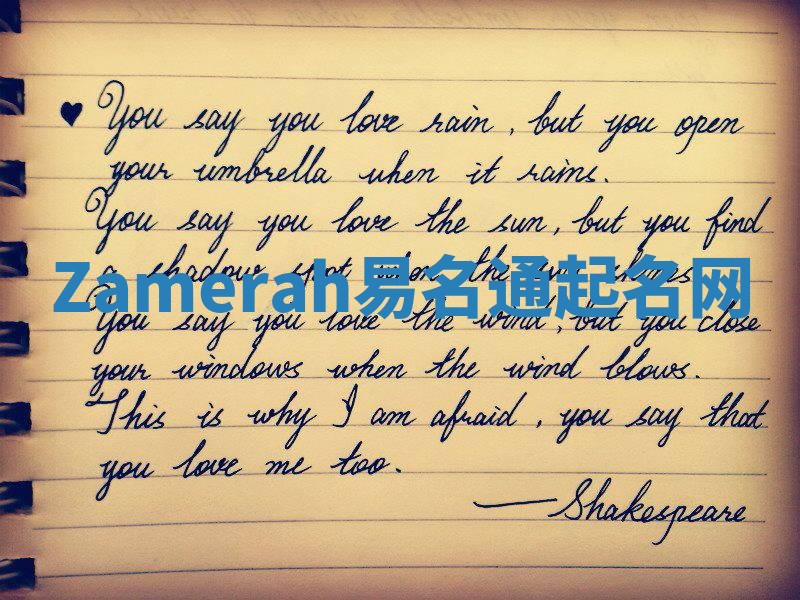 ♥ You say you love rain, but you open
your umbrella when it rains.
You say you love the sun, but you find
a shadow spot when the sun shines.
Zamerah易名通起名网
You say you love the wind, but you close
your windows when the wind blows.
This is why I am afraid, you say that
you love me too.
—Shakespeare